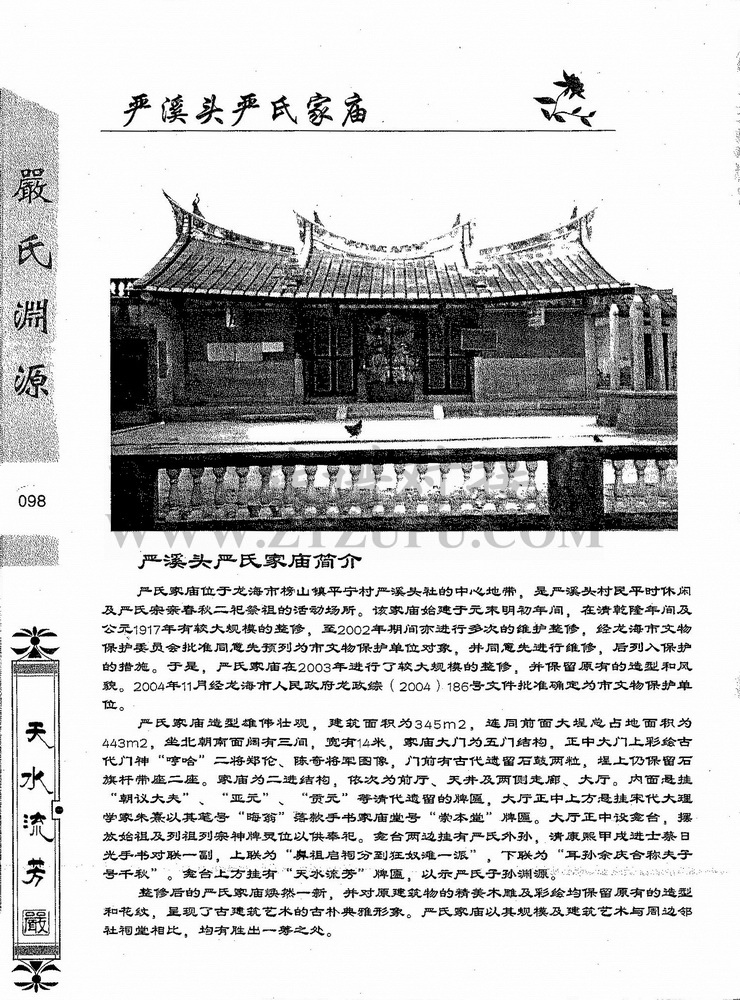 严溪头严氏家庙
嚴氏淵源
098
WWW.ZTZUPU.COM
严溪头严氏家庙简介
严氏家庙位于龙海市榜山镇平宁村严溪头社的中心地带，是严溪头村民平时休闲
及严氏宗亲春秋二祀祭祖的活动场所。该家庙始建于元末明初年间，在清乾隆年间及
公元1917年有较大规模的整修，至2002年期间亦进行多次的维护整修，经龙海市文物
保护委员会批准同意先预列为市文物保护单位对象，并同意先进行维修，后列入保护
的措施。于是，严氏家庙在2003年进行了较大规模的整修，并保留原有的造型和风
貌。2004年11月经龙海市人民政府龙政综（2004）186号文件批准确定为市文物保护单
位。
严氏家庙造型雄伟壮观，建筑面积为345m2，连同前面大埕总占地面积为
443m2，坐北朝南面阔有三间，宽有14米，家庙大门为五门结构，正中大门上彩绘古
代门神“哼哈”二将郑伦、陈奇将军图像，门前有古代遗留石鼓两粒，埕上仍保留石
旗杆带座二座。家庙为二进结构，依次为前厅、天井及两侧走廊、大厅。内面悬挂
“朝议大夫”、“亚元”、“贡元”等清代遗留的牌匾，大厅正中上方悬挂宋代大理
学家朱熹以其笔号“晦翁”落款手书家庙堂号“崇本堂”牌匾。大厅正中设龛台，摆
放始祖及列祖列宗神牌灵位以供奉祀。龛台两边挂有严氏外孙，清康熙甲戌进士蔡日
光手书对联一副，上联为“鼻祖启祠分到狂奴滩一派”，下联为“耳孙余庆合称夫子
号千秋”。龛台上方挂有“天水流芳”牌匾，以示严氏子孙渊源。
整修后的严氏家庙焕然一新，并对原建筑物的精美木雕及彩绘均保留原有的造型
和花纹，呈现了古建筑艺术的古朴典雅形象。严氏家庙以其规模及建筑艺术与周边邻
社祠堂相比，均有胜出一筹之处。
天水流芳
嚴